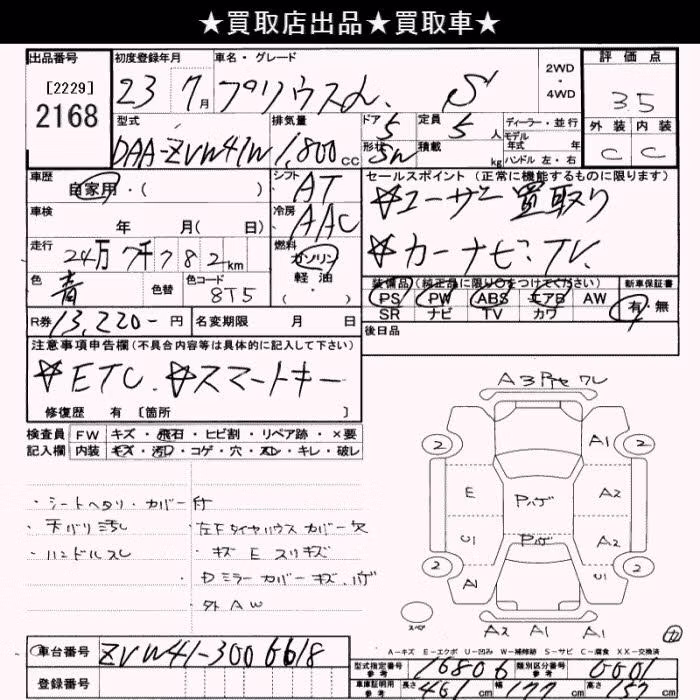 ★買取店出品★買取車★
出品番号 初度登録年月 車名・グレード 2WD・4WD 評価点
[2229]
2168
23 7月 プリウスα. S
35
外装 内装
C C
型式 排気量 ドア 定員 ディーラー・並行
DAA-ZVW41W 1,800cc 5 5人
形状 積載 モデル年式 年
5W kg ハンドル 左・右
車歴 シフト セールスポイント (正常に機能するものに限ります)
自家用・( ) AT
☆ユーザー買取り
車検 冷房
年 月( 日) AAC
☆カーナビ:TV.
走行 燃料
24万7千782km ガソリン
軽油
・( )
色 色替 色コード
青 8T5
装備品(純正品に限り○をつけてください) 新車保証書
PS PW ABS エアB AW 有・無
SR ナビ TV カワ
R券 13,220-円 名変期限 月 日
後日品
注意事項申告欄(不具合内容等は具体的に記入して下さい)
☆ETC. ☆スマートキー
修復歴 有 [箇所 ]
検査員 FW キズ・飛石・ヒビ割・リペア跡・×要
記入欄 内装 キズ・汚レ・コゲ・穴・スレ・キレ・破レ
・シートヘタリ・カバー付
・天バリ汚レ
・ハンドルスレ
左Fタイヤハウスカバー欠
・キズ E スリキズ
・Dミラーカバーキズ.ハゲ
・外AW
A3
2 A1 2
E Pハゲ A2
U1 Pハゲ A2
2 A1 U1 2
スペア
A2 A1 A1
A-キズ E-エクボ U-凹み W-補修跡 S-サビ C-腐食 XX-交換済
車台番号 ZVW41-3006618
登録番号
型式指定番号 参考 16806 類別区分番号 参考 0001
車庫証明用 参考 長さ 461cm 幅 177cm 高さ 157cm